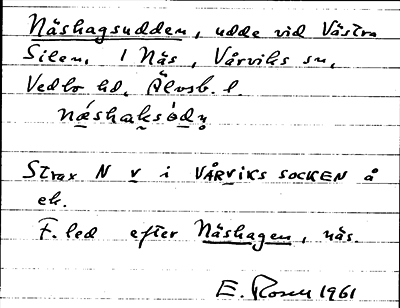 Näshagsudden, udde vid Västra
Silen, i Näs, Vårviks sn,
Vedbo hd, Älvsb. l.
næ̀shaksòdn̥
Strax N v i VÅRVIKS SOCKEN å
ek.
F. led efter Näshagen, näs.
E. Rosell 1961